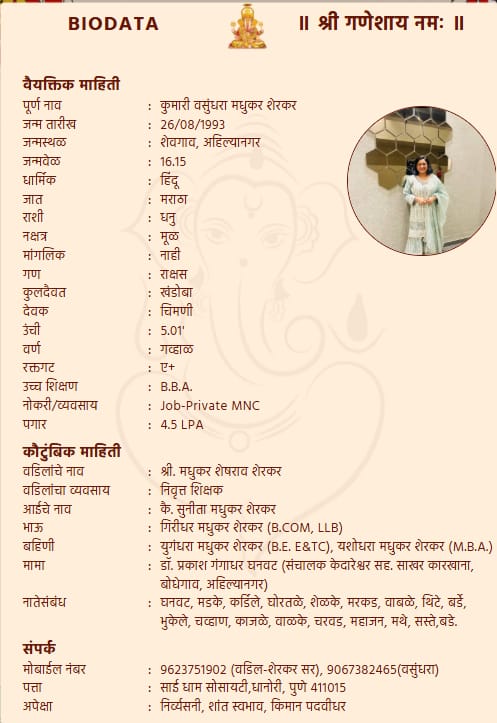 BIODATA
॥ श्री गणेशाय नमः ॥
वैयक्तिक माहिती
पूर्ण नाव : कुमारी वसुंधरा मधुकर शेरकर
जन्म तारीख : 26/08/1993
जन्मस्थळ : शेवगाव, अहिल्यानगर
जन्मवेळ : 16.15
धार्मिक : हिंदू
जात : मराठा
राशी : धनु
नक्षत्र : मूळ
मांगलिक : नाही
गण : राक्षस
कुलदैवत : खंडोबा
देवक : चिमणी
उंची : 5.01'
वर्ण : गव्हाळ
रक्तगट : ए+
उच्च शिक्षण : B.B.A.
नोकरी/व्यवसाय : Job-Private MNC
पगार : 4.5 LPA
कौटुंबिक माहिती
वडिलांचे नाव : श्री. मधुकर शेषराव शेरकर
वडिलांचा व्यवसाय : निवृत्त शिक्षक
आईचे नाव : कै. सुनीता मधुकर शेरकर
भाऊ : गिरीधर मधुकर शेरकर (B.COM, LLB)
बहिणी : युगंधरा मधुकर शेरकर (B.E. E&TC), यशोधरा मधुकर शेरकर (M.B.A.)
मामा : डॉ. प्रकाश गंगाधर घनवट (संचालक केदारेश्वर सह. साखर कारखाना,
बोधेगाव, अहिल्यानगर)
नातेसंबंध : घनवट, मडके, कर्डिले, घोरतळे, शेळके, मरकड, वाबळे, थिटे, बर्डे,
भुकेले, चव्हाण, काजळे, वाळके, चरवड, महाजन, मथे, सस्ते,बडे.
संपर्क
मोबाईल नंबर : 9623751902 (वडिल-शेरकर सर), 9067382465(वसुंधरा)
पत्ता : साई धाम सोसायटी,धानोरी, पुणे 411015
अपेक्षा : निर्व्यसनी, शांत स्वभाव, किमान पदवीधर